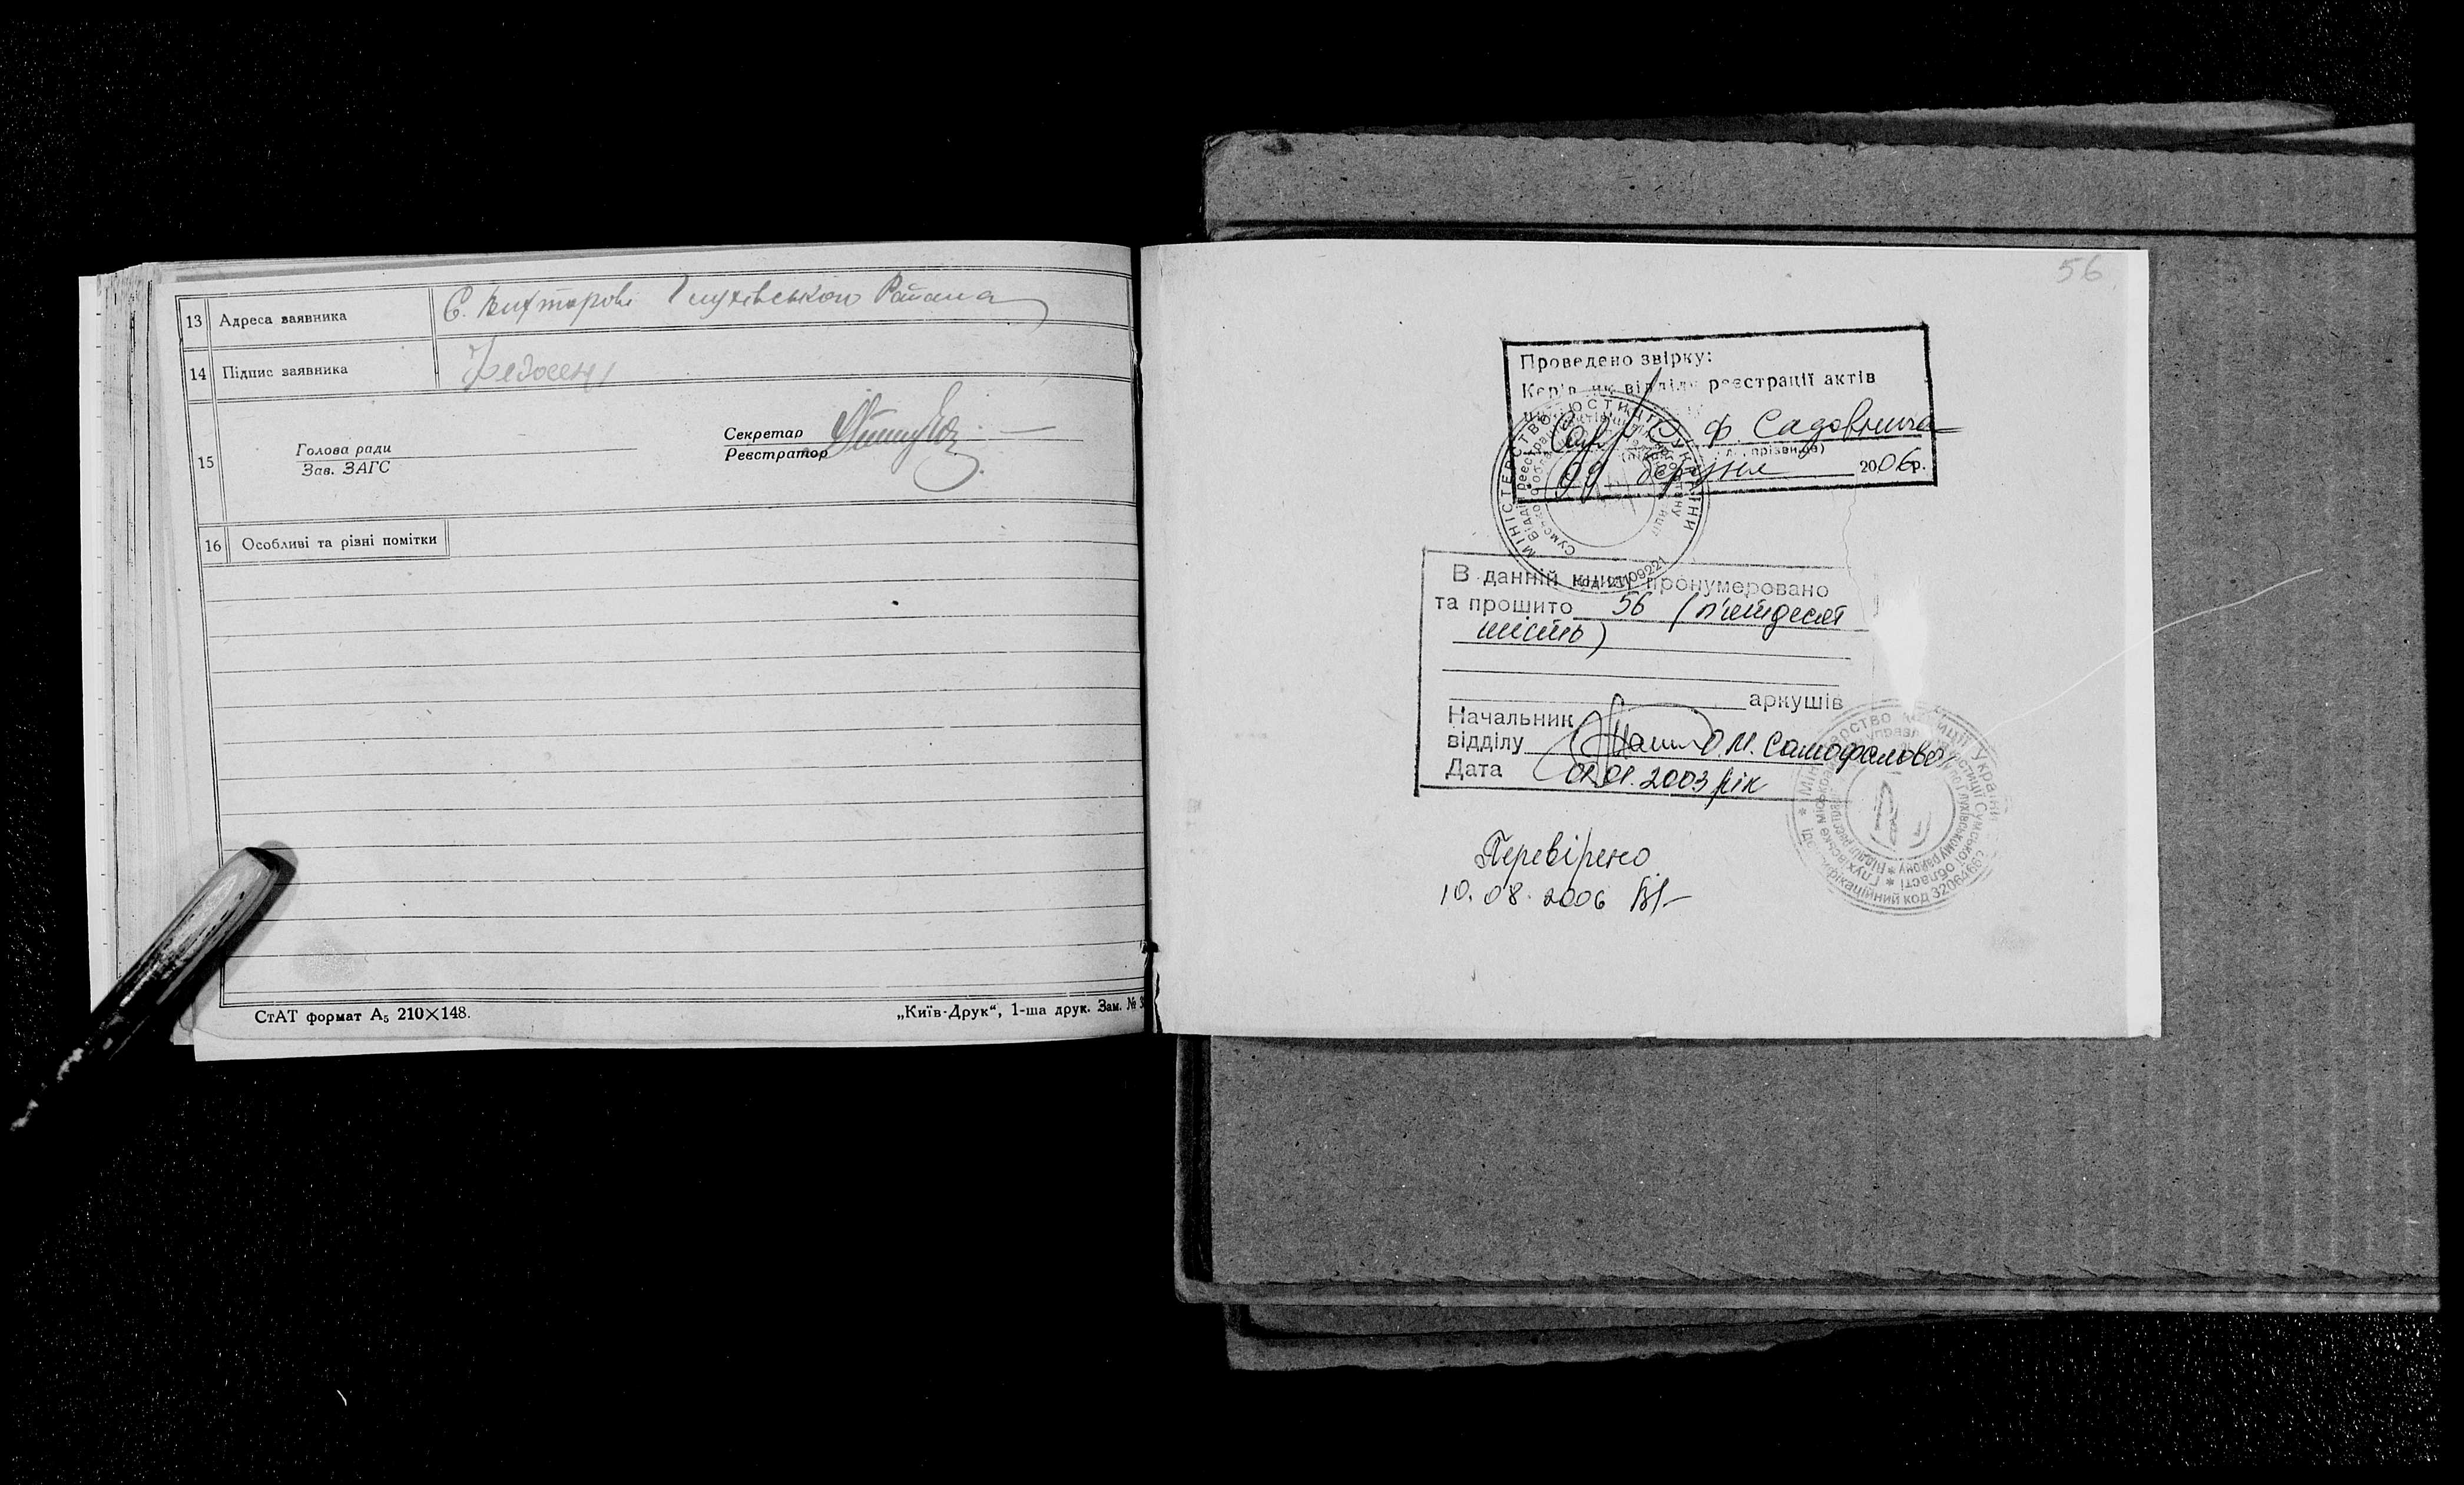 13 Адреса заявника С. Вихторові Глухівського Района
14 Підпис заявника
15
Голова ради
Зав. ЗАГС
Секретар
Реєстратор
16 Особливі та різні помітки
СтАТ формат А₅ 210×148.
„Київ-Друк“, 1-ша друк. Зам. №
56
Проведено звірку:
Керівник відділу реєстрації актів
Ф. Садовнича
(підпис, прізвище)
09 березня 2006р.
МІНІСТЕРСТВО ЮСТИЦІЇ УКРАЇНИ
В данній книзі пронумеровано
та прошито 56 (п'ятдесят
шість)
аркушів
Начальник
відділу О.М. Самофалова
Дата 01.01.2003 рік
Міністерство юстиції України
ідентифікаційний код 32064662
Перевірено
10.08.2006